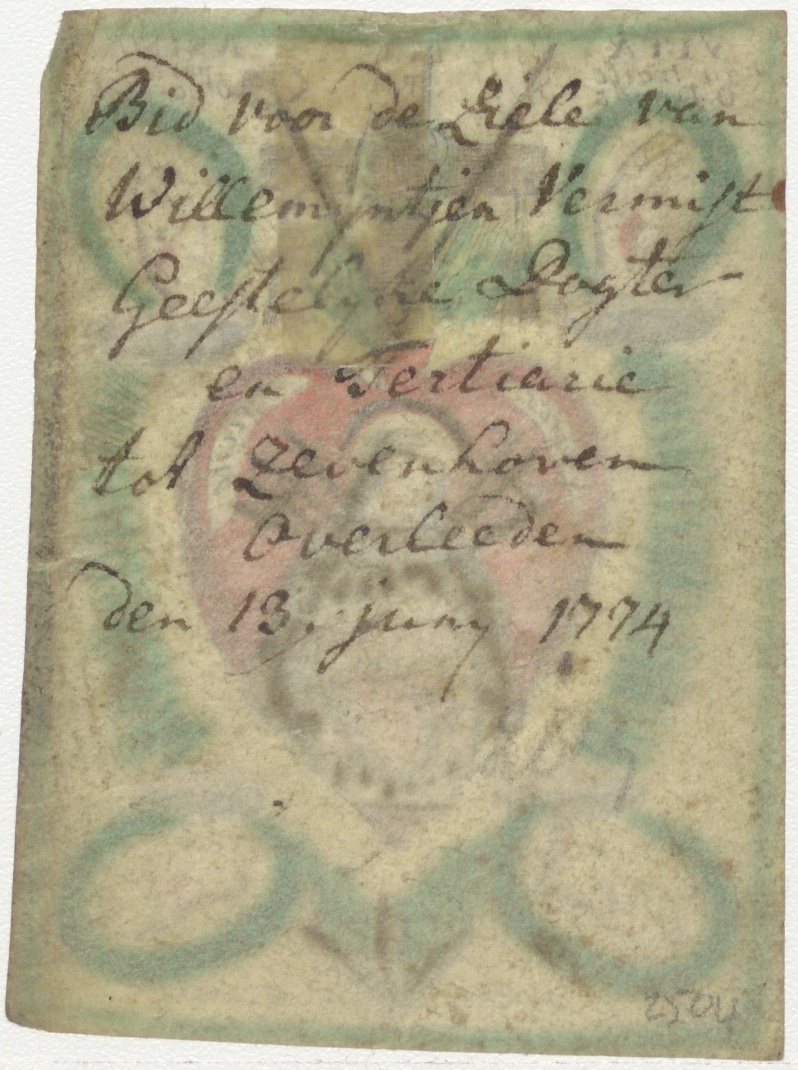 Bid voor de Ziele van
Willemijntjen Vermist
Geestelyke Dogter
en Tertiarie
tot Zevenhoven
Overleeden
den 13. juny 1774